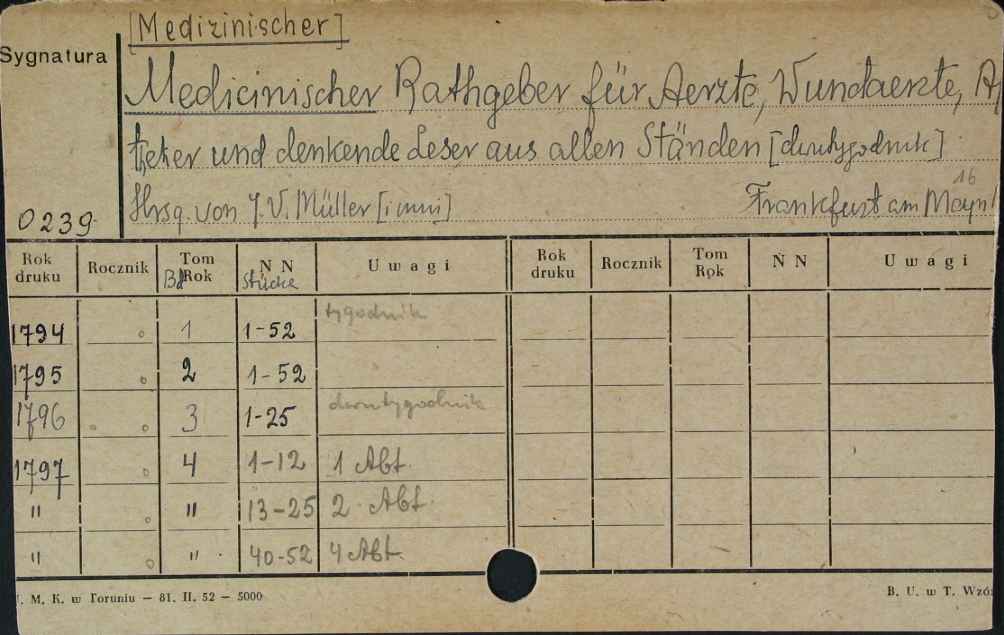 [Medizinischer]
Sygnatura
Medicinischer Rathgeber für Aerzte, Wundaerzte, A
theker und denkende Leser aus allen Ständen [dwutygodnik]
16
0239 Hrsg. von J. V. Müller [i inni] Frankfurt am Mayn
Rok druku Rocznik Tom Rok Bd N N Stücke Uwagi Rok druku Rocznik Tom Rok N N Uwagi
1794 1 1-52 tygodnik
1795 2 1-52
1796 3 1-25 dwutygodnik
1797 4 1-12 1 Abt.
" " 13-25 2 Abt.
" " 40-52 4 Abt.
. M. K. w Toruniu — 81. II. 52 — 5000 B. U. w T. Wzó